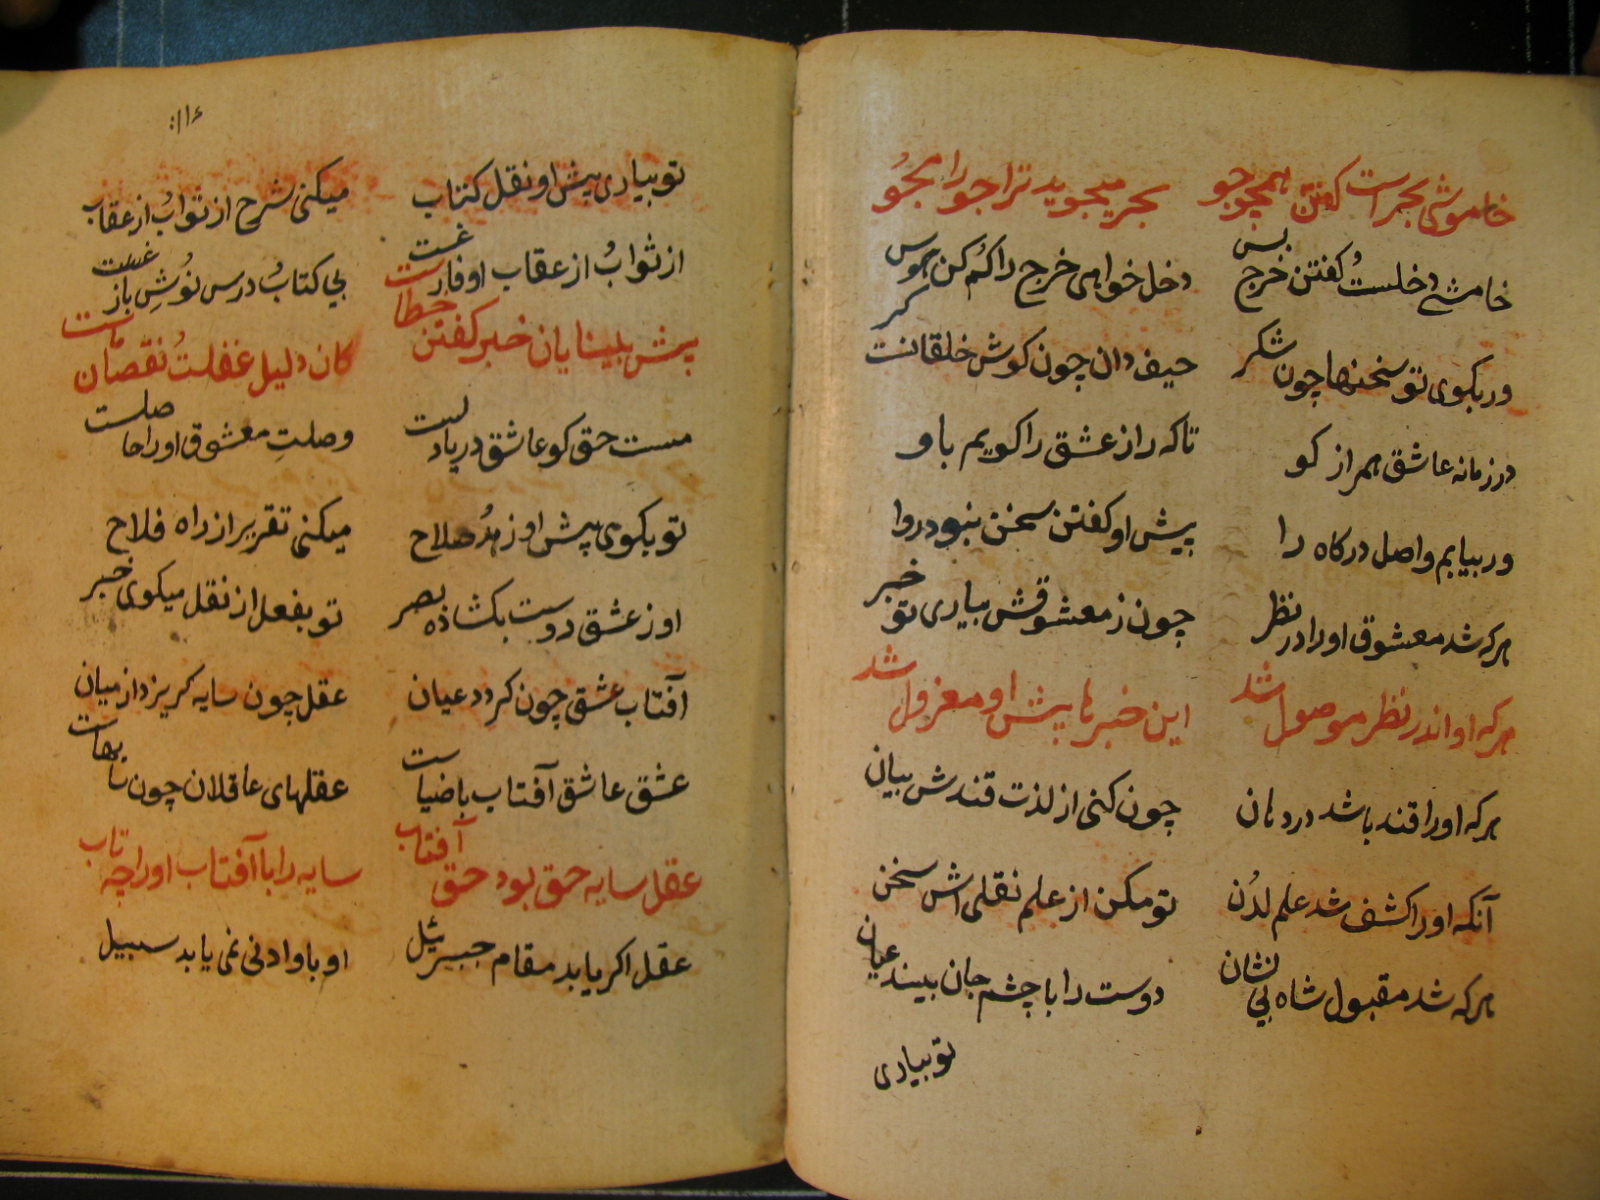 خاموشی بحرست کفتن همچو جو بحر میجوید ترا جو را مجو
خامشی دخلست کفتن خرج بس دخل خواهی خرج را کم کن هوس
ور بکوی تو سخنها چون شکر حیف دان چون کوش خلقانت کر
در زمانه عاشق همراز کو تاکه راز عشق را کویم باو
ور بیابم واصل درکاه را پیش او کفتن سخن نبود روا
هرکه شد معشوق اورا در نظر چون ز معشوقش بیاری تو خبر
هرکه او اندر نظر موصول شد این خبرها پیش او معزول شد
هرکه اورا قند باشد در دهان چون کنی از لذت قندش بیان
آنکه اورا کشف شد علم لدن تو مکن از علم نقلی اش سخن
هرکه شد مقبول شاه بی نشان دوست را با چشم جان بیند عیان
تو بیاری
۱۱۶
تو بیاری پیش او نقل کتاب میکنی شرح از ثواب از عقاب
از ثواب از عقاب او فارغست بی کتاب درس نوش بازغست
پیش بینایان خبر کفتن خطاست کان دلیل غفلت نقصان ماست
مست حق کو عاشق دریادلست وصلت معشوق اورا حاصلست
تو بکوی پیش او زهد صلاح میکنی تقریر از راه فلاح
او ز عشق دوست بکشاده بصر تو بفعل از نقل میکوی خبر
آفتاب عشق چون کردد عیان عقل چون سایه کریزد از میان
عشق عاشق آفتاب باضیاست عقلهای عاقلان چون
عقل سایه حق بود حق آفتاب سایه را با آفتاب اورا چه تاب
عقل اکر یابد مقام جبرئیل او باو ادنی نمی یابد سبیل